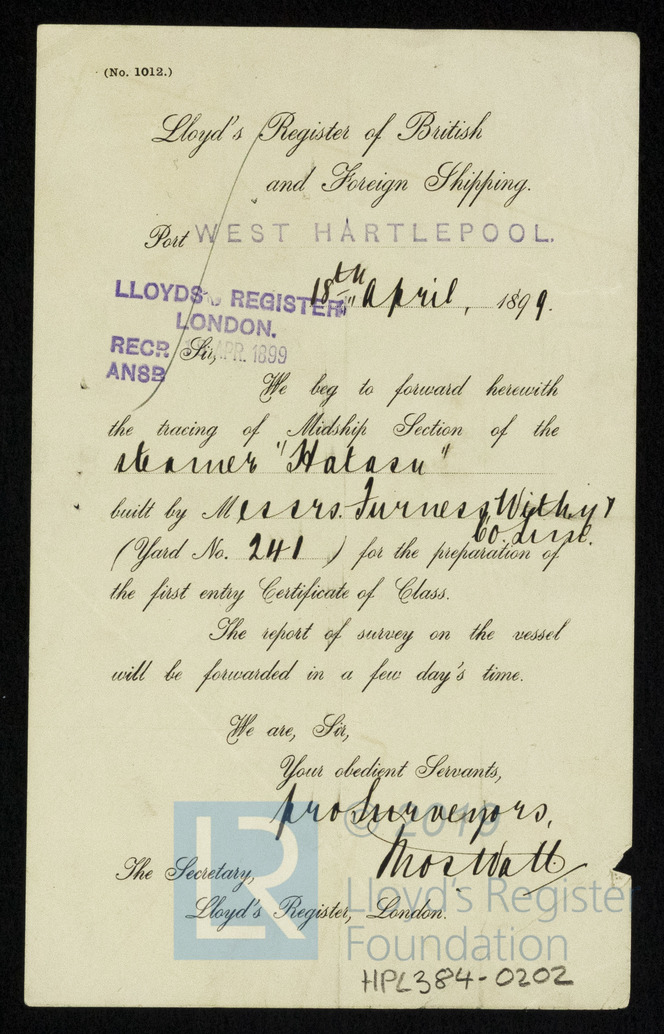 (No. 1012.)
Lloyd's Register of British
and Foreign Shipping.
Port WEST HARTLEPOOL.
18th April, 1899.
LLOYDS REGISTER
LONDON.
RECR. APR. 1899
ANSD
Sir,
We beg to forward herewith
the tracing of Midship Section of the
steamer "Hatasu"
built by Messrs. Furness Withy &
Co. Limd.
(Yard No. 241) for the preparation of
the first entry Certificate of Class.
The report of survey on the vessel
will be forwarded in a few day's time.
We are, Sir,
Your obedient Servants,
pro Surveyors,
Thos Watt
The Secretary,
Lloyd's Register, London.
LR
© 2019
Lloyd's Register
Foundation
HPL384-0202